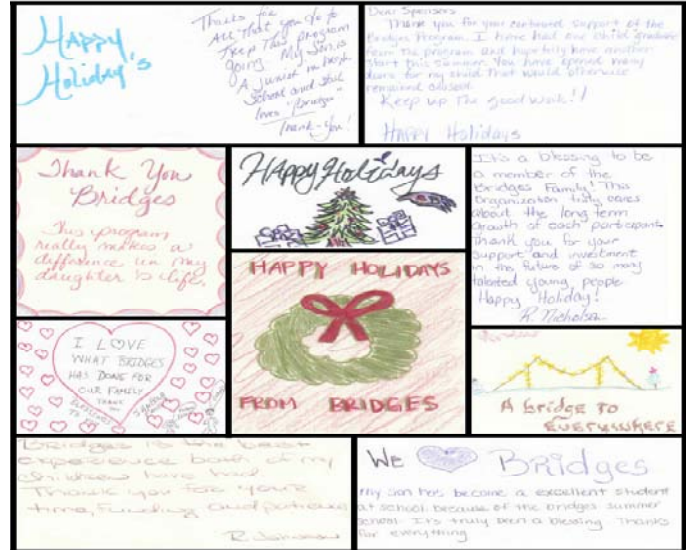 Happy
Holiday's
Thanks for
All That you do to
Keep This program
going. My Son is
A junior in high
School and still
loves "Bridges"
Thank-You!
Dear Sponsors
Thank you for your continued support of the
Bridges Program. I have had one child graduate
from the program and hopefully have another
start this summer. You have opened many
doors for my child that would otherwise
remained closed.
Keep up the good work!!
Happy Holidays
Thank You
Bridges
This program
really makes a
difference in my
daughter's life.
Happy Holidays
It's a blessing to be
a member of the
Bridges Family! This
Organization truly cares
about the long term
Growth of each participant.
Thank you for your
support and investment
in the future of so many
talented young people
Happy Holiday!
R. Nicholson
HAPPY HOLIDAYS
FROM BRIDGES
I LOVE
WHAT BRIDGES
HAS DONE FOR
OUR FAMILY
THANK
YOU
BLESSINGS
TO
A bridge to
EVERYWHERE
Bridges is the best
experience both of my
children have had
Thank you for your
time, funding and patience
R. Johnson
We Bridges
My son has become a excellent student
at school because of the bridges summer
school. It's truly been a blessing Thanks
for everything